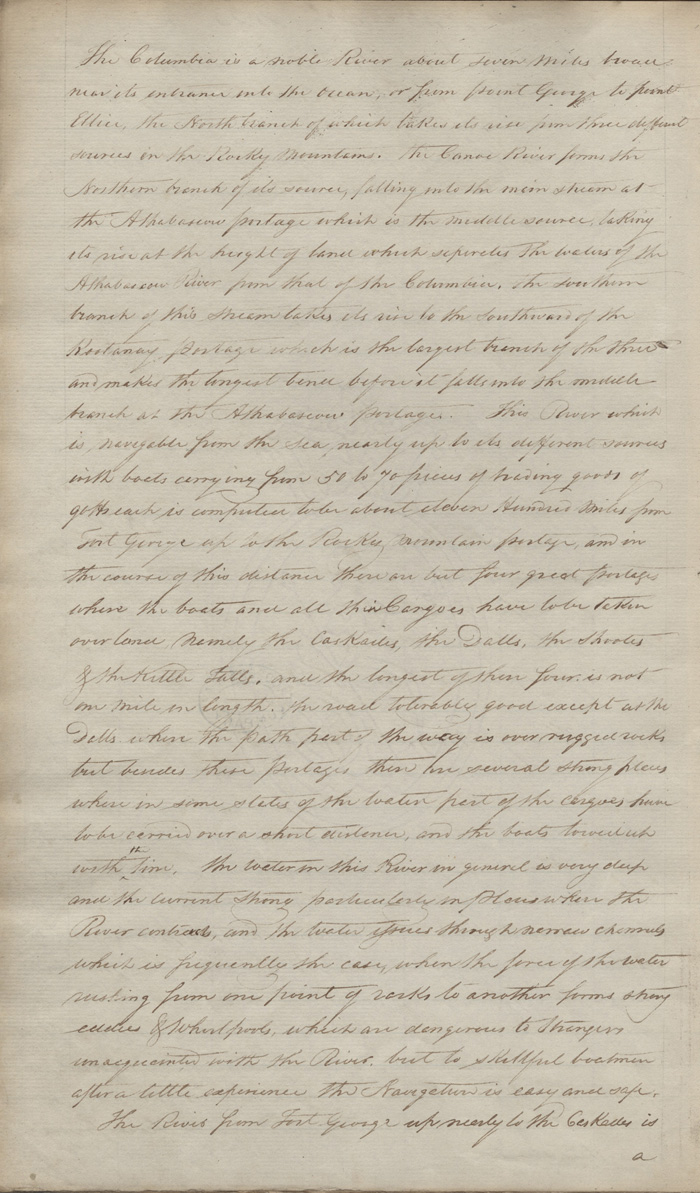 The Columbia is a noble River about seven Miles broad
near its entrance into the Ocean, or from point George to point
Ellice, the North branch of which takes its rise from three different
sources in the Rocky Mountains. The Canoe River forms the
Northern branch of its source, falling into the main stream at
the Athabascow portage which is the middle source, taking
its rise at the height of land which seperates the waters of the
Athabascow River from that of the Columbia. The southern
branch of this stream takes its rise to the Southward of the
Kootanay portage which is the largest branch of the three
and makes the longest bend before it falls into the middle
branch at the Athabascow portage. This River which
is navegable from the Sea, nearly up to its different sources
with boats carrying from 50 to 70 pieces of trading goods of
90 lbs each is computed to be about eleven Hundred Miles from
Fort George up to the Rocky Mountain portage, and in
the course of this distance there are but four great portages
where the boats and all their Cargoes have to be taken
over land Namely the Caskades, the Dalls, the Shootes
& the Kettle Falls. and the longest of these four is not
one mile in length. the road tolerably good except at the
Dalls where the path part of the way is over rugged rocks
but besides these portages there are several strong places
where in some states of the water part of the cargoes have
to be carried over a short distance, and the boats towed up
with the line. The water in this River in general is very deep
and the current strong particularly in places where the
River contracts, and the water issues through narrow channels
which is frequently the case, when the force of the water
rushing from one point of rocks to another forms strong
eddies & Whirlpools, which are dangerous to Strangers
unacquainted with the River. but to skillful boatmen
after a little experience the Navigation is easy and safe.
The River from Fort George up nearly to the Caskades is
a